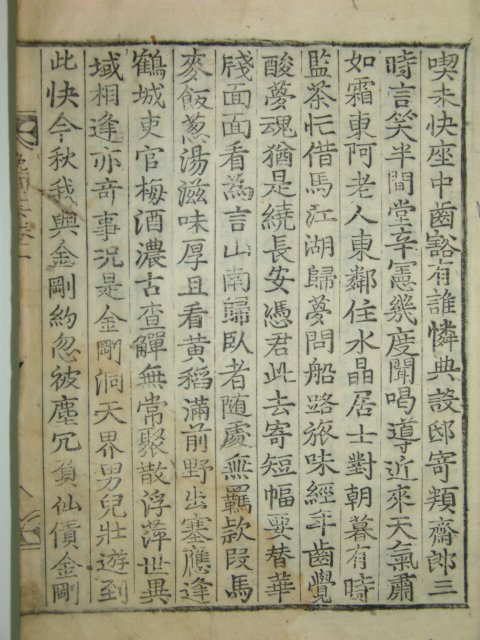 喫未快座中齒豁有誰憐典設邸寄類齋郎三
時言笑半間堂辛憲幾度聞喝導近來天氣肅
如霜東阿老人東鄰住水晶居士對朝暮有時
監茶忙借馬江湖歸夢問船路旅味經年齒覺
酸夢魂猶是繞長安憑君此去寄短幅要替華
牋面面看為言山南歸臥者随處無羈款段馬
麥飯葱湯滋味厚且看黃稻滿前野出塞應逢
鶴城吏官梅酒濃古查觶無常聚散浮萍世異
域相逢亦竒事況是金剛洞天界男兒壯遊到
此快今秋我與金剛約忽被塵冗負仙債金剛